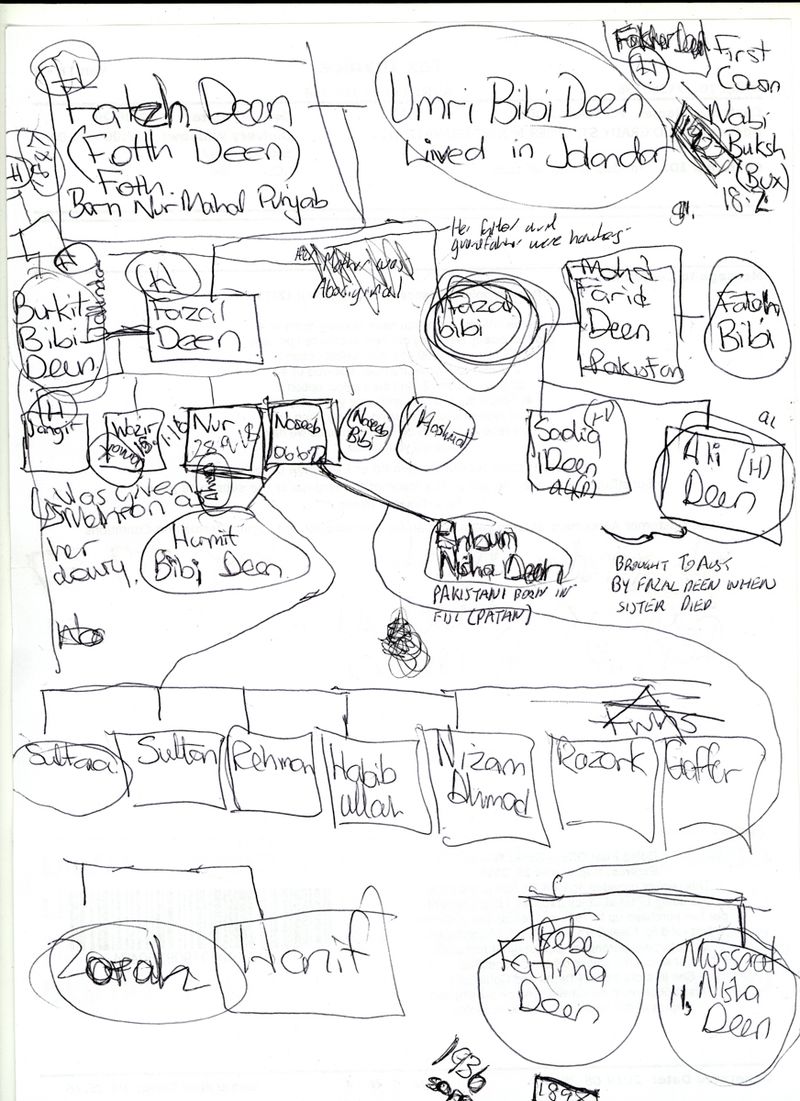 Fateh Deen
(Fotth Deen)
Foth
Born Nur Mahal Punjab
Umri Bibi Deen
Lived in Jalandar
(H)
First
Cousn
Nabi
Buksh
(Bux)
18.2
1892
(H)
(H)
Burkit
Bibi
Deen
(H)
Fazal
Deen
Her father and
grandfather were hawkers
Mother was
Aboriginal
Fazal
bibi
Mohd
Farid
Deen
Pakistan
Fateh
Bibi
(H)
Jangir
Wazir
Nur
28.9.18
Naseeb
Naseeb
Bibi
Hashmat
Sadiq
Deen
(H)
Ali
Deen
(H)
Was given
her
dowry.
Hurmit
Bibi Deen
Nisha Deen
PAKISTANI BORN IN
FIJI (PATAN)
BROUGHT TO AUST
BY FAZAL DEEN WHEN
SISTER DIED
Twins
Sultana
Sultan
Rehman
Habib
ullah
Nizam
Ahmad
Razark
Gaffer
Zorah
Hanif
Bebe
Fatima
Deen
Mussarat
Nisha
Deen
1936
1898